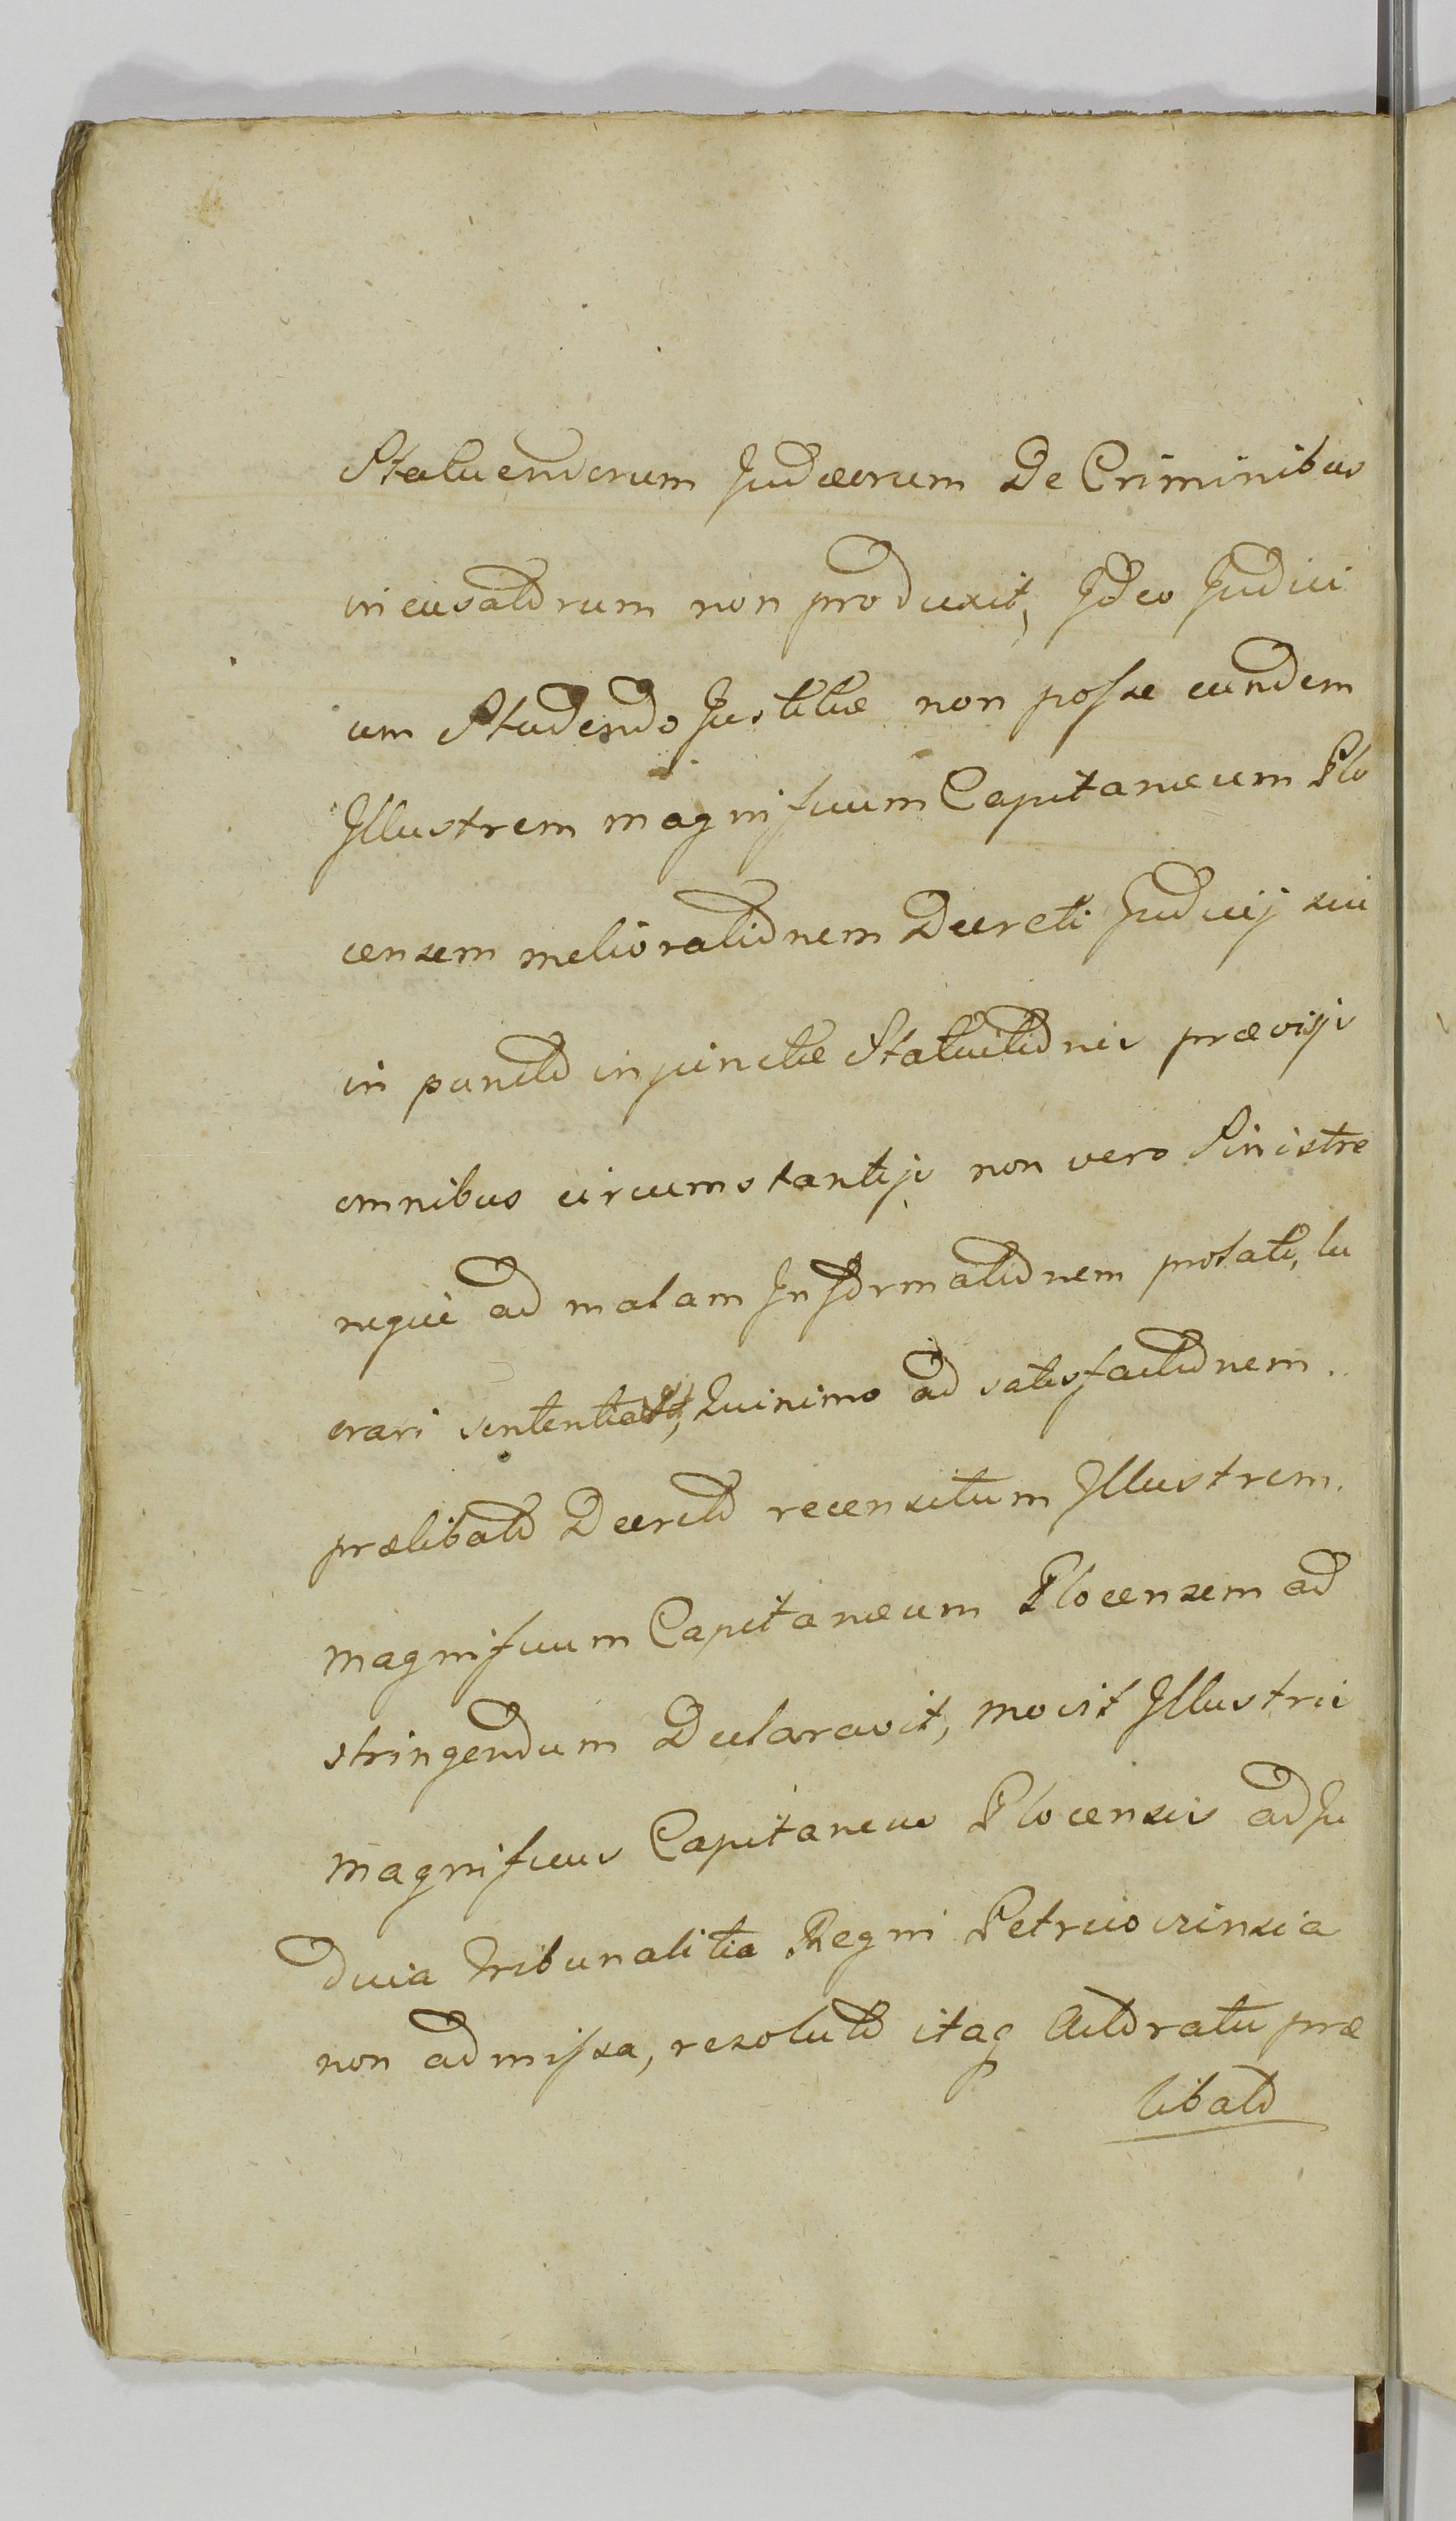 Statuendorum Judæorum De Criminibus
incusatorum non produxit, Ideo Judici
um Studendo Justitiæ non posse eundem
Illustrem magnificum Capitaneum Plo
censem meliorationem Decreti Judicij sui
in puncto injunctæ Statuitionis prævisis
omnibus circumstantijs non vero Sinistre
neque ad malam Informationem prolati, lu
crari sententiavit, Quinimo ad satisfactionem
prælibato Decreto recensitum Illustrem
magnificum Capitaneum Plocensem ad
stringendum Declaravit, movit Illustris
magnificus Capitaneus Plocensis ad Ju
dicia Tribunalitia Regni Petricoviensia
non admissa, resoluto itaq Actoratu præ
libato